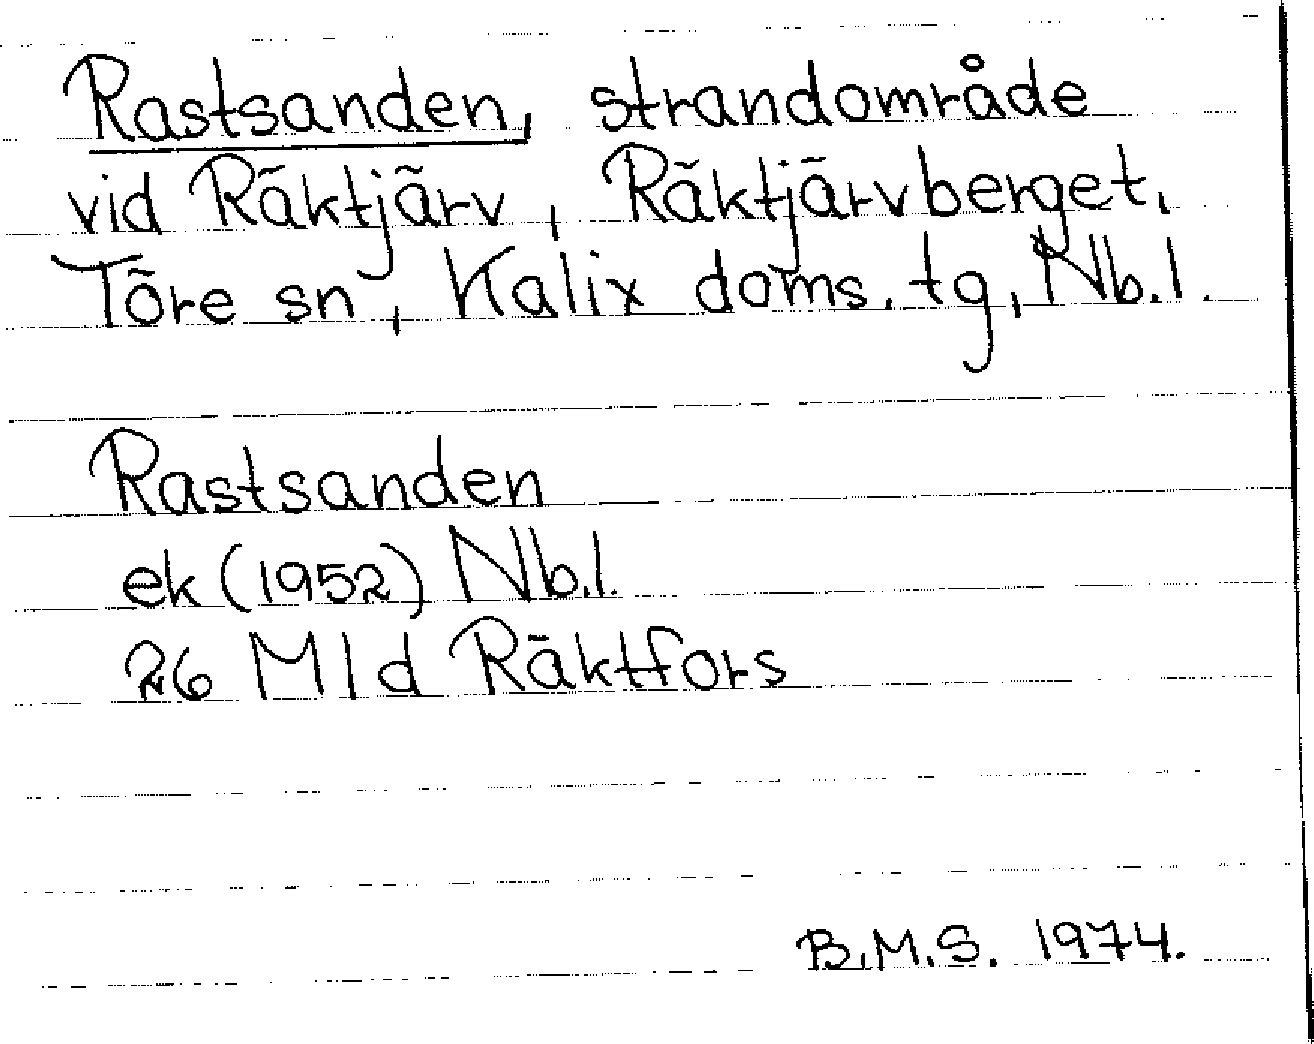 Rastsanden, strandområde
vid Räktjärv, Räktjärvberget,
Töre sn, Kalix doms. tg, Nb.l.
Rastsanden
ek (1952) Nb.l.
26 Mld Räktfors
B.M.S. 1974.